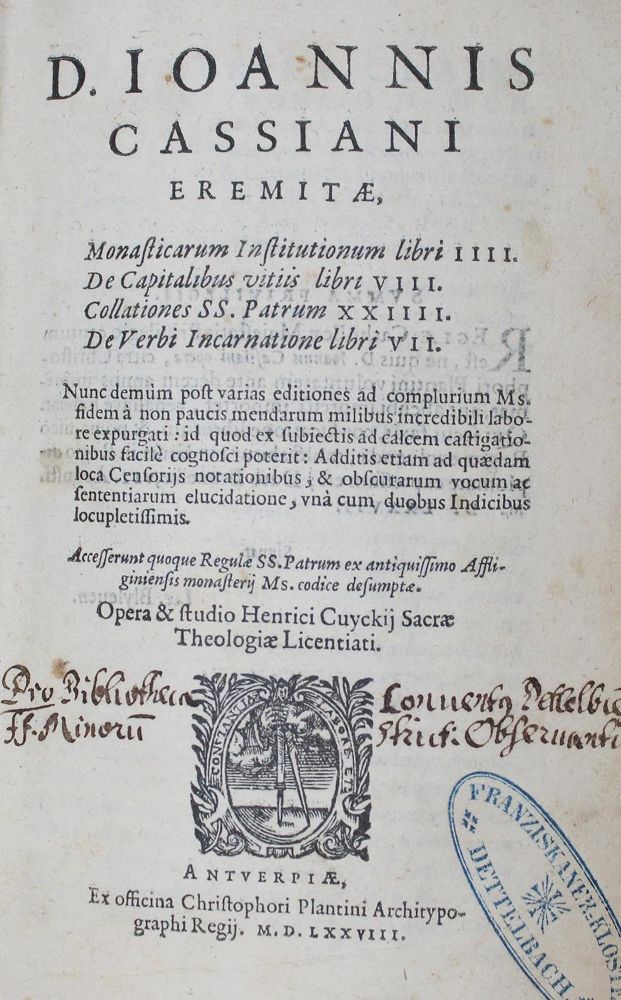 D. IOANNIS
CASSIANI
EREMITÆ,
Monasticarum Institutionum libri IIII.
De Capitalibus vitiis libri VIII.
Collationes SS. Patrum XXIIII.
De Verbi Incarnatione libri VII.
Nunc demùm post varias editiones ad complurium Ms.
fidem à non paucis mendarum milibus incredibili labo-
re expurgati: id quod ex subiectis ad calcem castigatio-
nibus facilè cognosci poterit: Additis etiam ad quædam
loca Censorijs notationibus, & obscurarum vocum ac
sententiarum elucidatione, vnà cum duobus Indicibus
locupletissimis.
Accesserunt quoque Regulæ SS. Patrum ex antiquissimo Affli-
giniensis monasterij Ms. codice desumptæ.
Opera & studio Henrici Cuyckij Sacræ
Theologiæ Licentiati.
Pro Bibliotheca
FF. Minorū
Conventus Dettelbac
strict: Observanti
CONSTANTIA ET LABORE
ANTVERPIÆ,
Ex officina Christophori Plantini Architypo-
graphi Regij. M. D. LXXVIII.
FRANZISKANER-KLOSTE
DETTELBACH